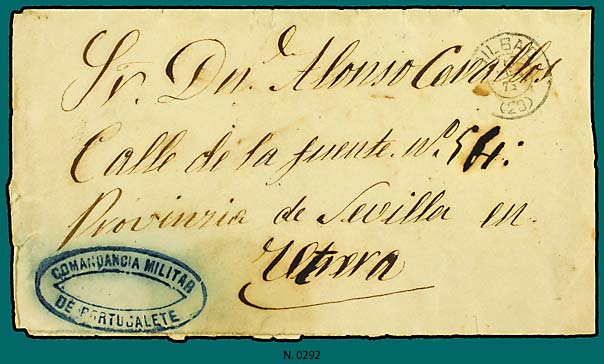 Sr. Dn. Alonso Cavallos
Calle de la fuente. nº. 54:
Provinzia de Sevilla en
Utrera
BILBAO
(28)
COMANDANCIA MILITAR
DE PORTUGALETE
N. 0292